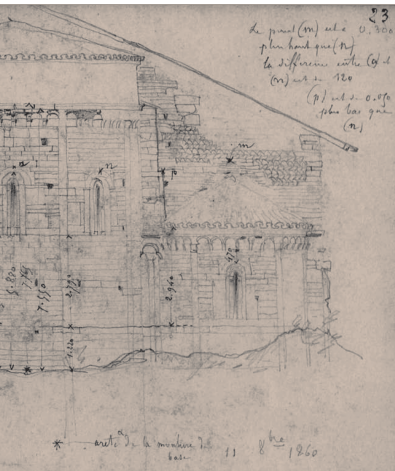 23
Le point (m) est à 0.300
plus haut que (n)
la différence entre (a) et
(n) est de 120
(p) est de 0.050
plus bas que
(n)
m
n
a
p
470
2.940
5.830
7.550
* arête de la moulure de
base
11 8bre 1860